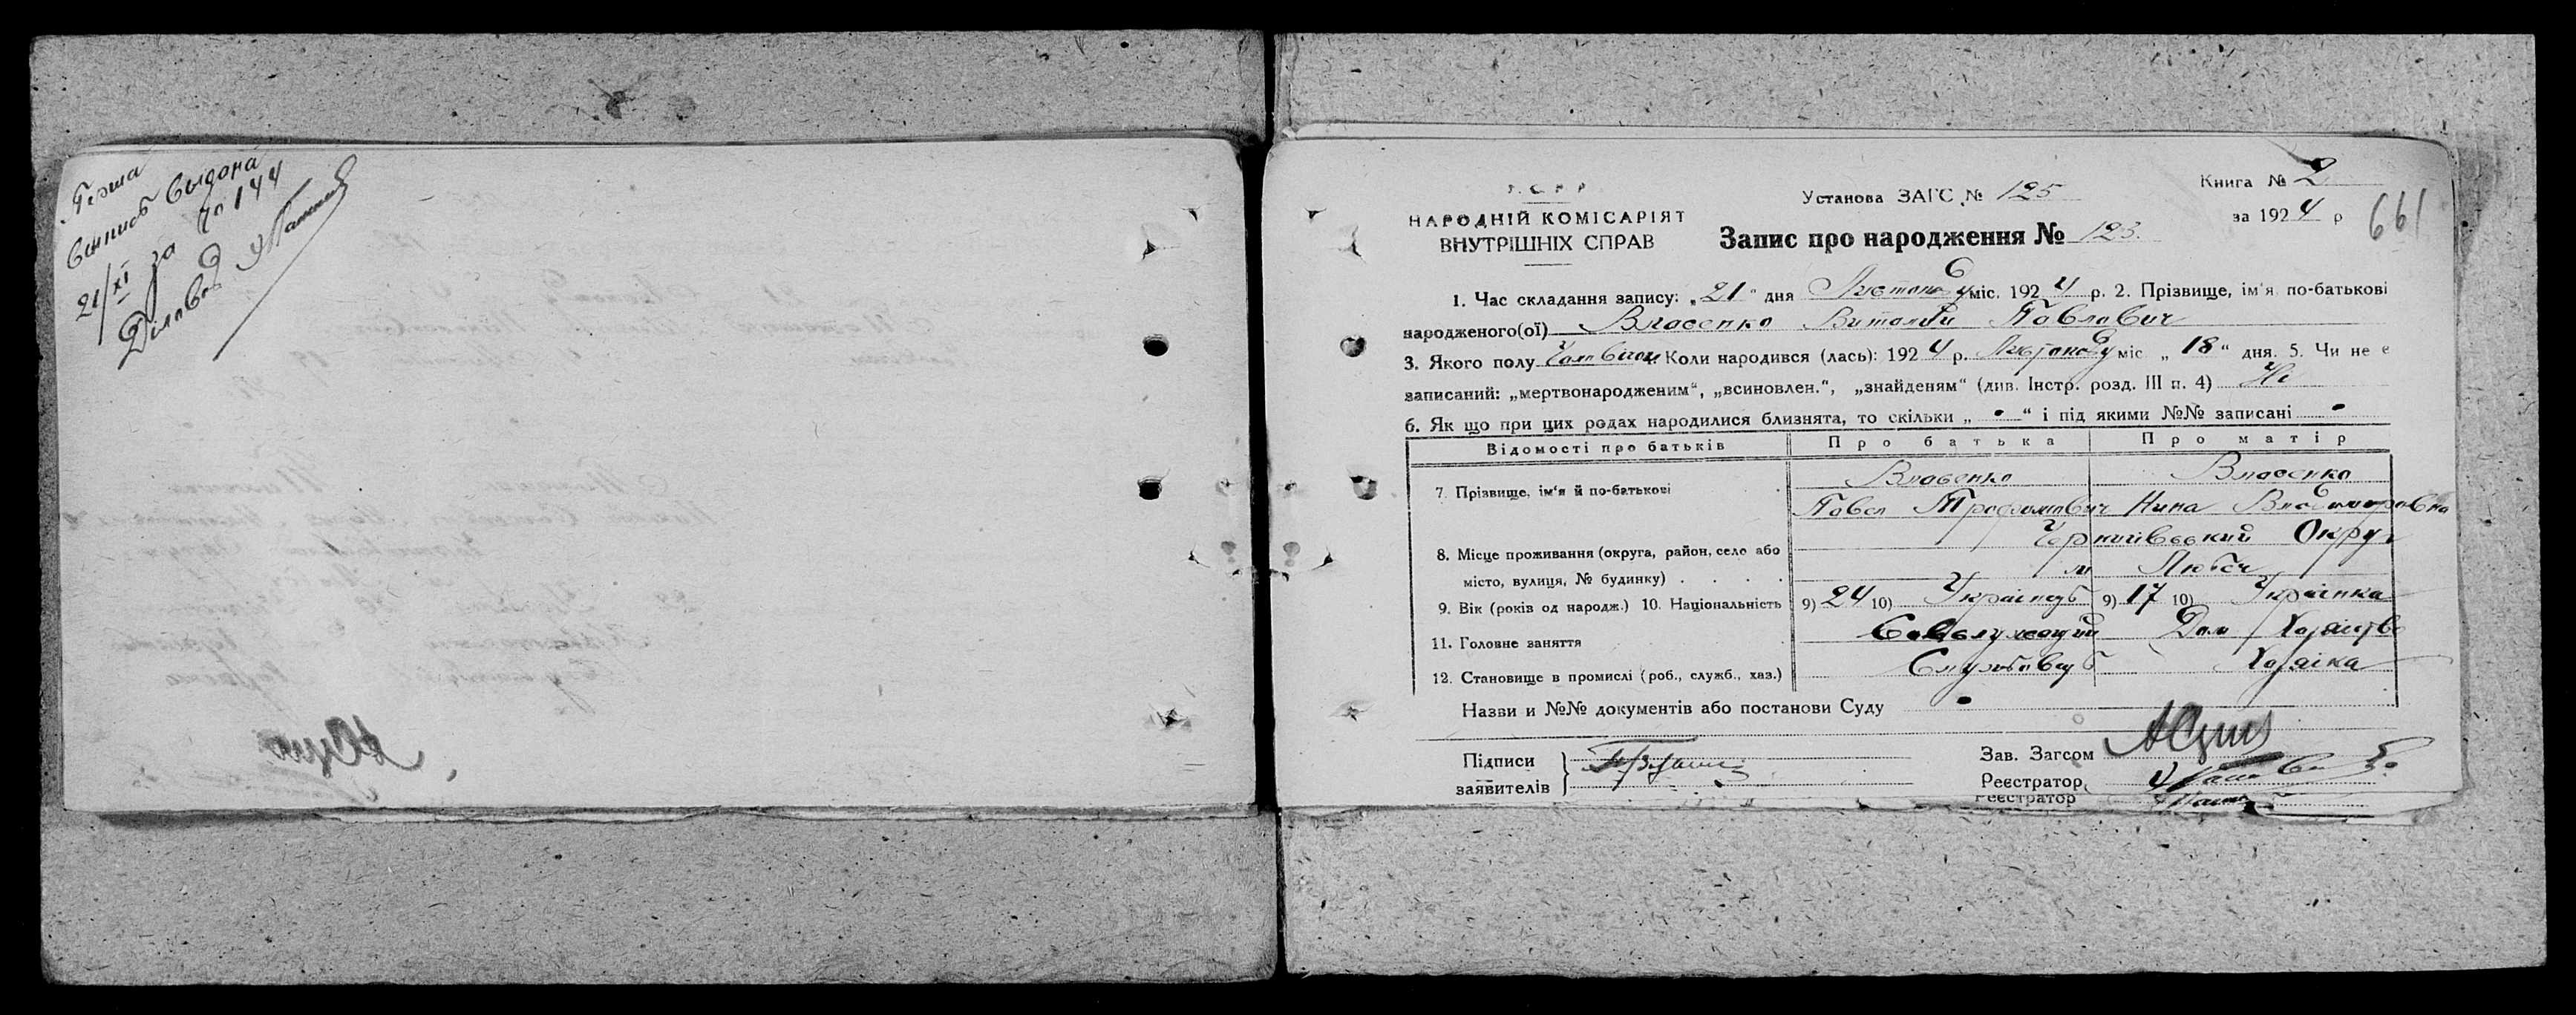 Перша
выпись выдона
21/XI за № 144
Діловод
У.С.Р.Р.
НАРОДНІЙ КОМІСАРІЯТ
ВНУТРІШНІХ СПРАВ
Установа ЗАГС № 125
Книга № 2
за 1924 р
661
Запис про народження № 123.
1. Час складання запису: „21“ дня Листопаду міс. 1924 р. 2. Прізвище, ім'я по-батькові
народженого(ої) Власенко Виталій Павлович
3. Якого полу Чоловічои Коли народився (лась): 1924 р. Листопаду міс „18“ дня. 5. Чи не є
записаний: „мертвонародженим“, „всиновлен.“, „знайденям“ (див. Інстр. розд. III п. 4) Ні
6. Як що при цих родах народилися близнята, то скільки „ • “ і під якими №№ записані •
Відомості про батьків Про батька Про матір
7. Прізвище, ім'я й по-батькові
Власенко Власенко
Павел Трофимович Нина Владимировна
8. Місце проживання (округа, район, село або
місто, вулиця, № будинку) . . . .
Чернигівський Округ
м Любеч
9. Вік (років од народж.) 10. Національність 9) 24 10) Українець 9) 17 10) Українка
11. Головне заняття Совслужащий Дом Хозяйство
12. Становище в промислі (роб., служб., хаз.) Службовець Хозяіка
Назви и №№ документів або постанови Суду •
Підписи
заявителів
Зав. Загсом
Реєстратор
Реєстратор